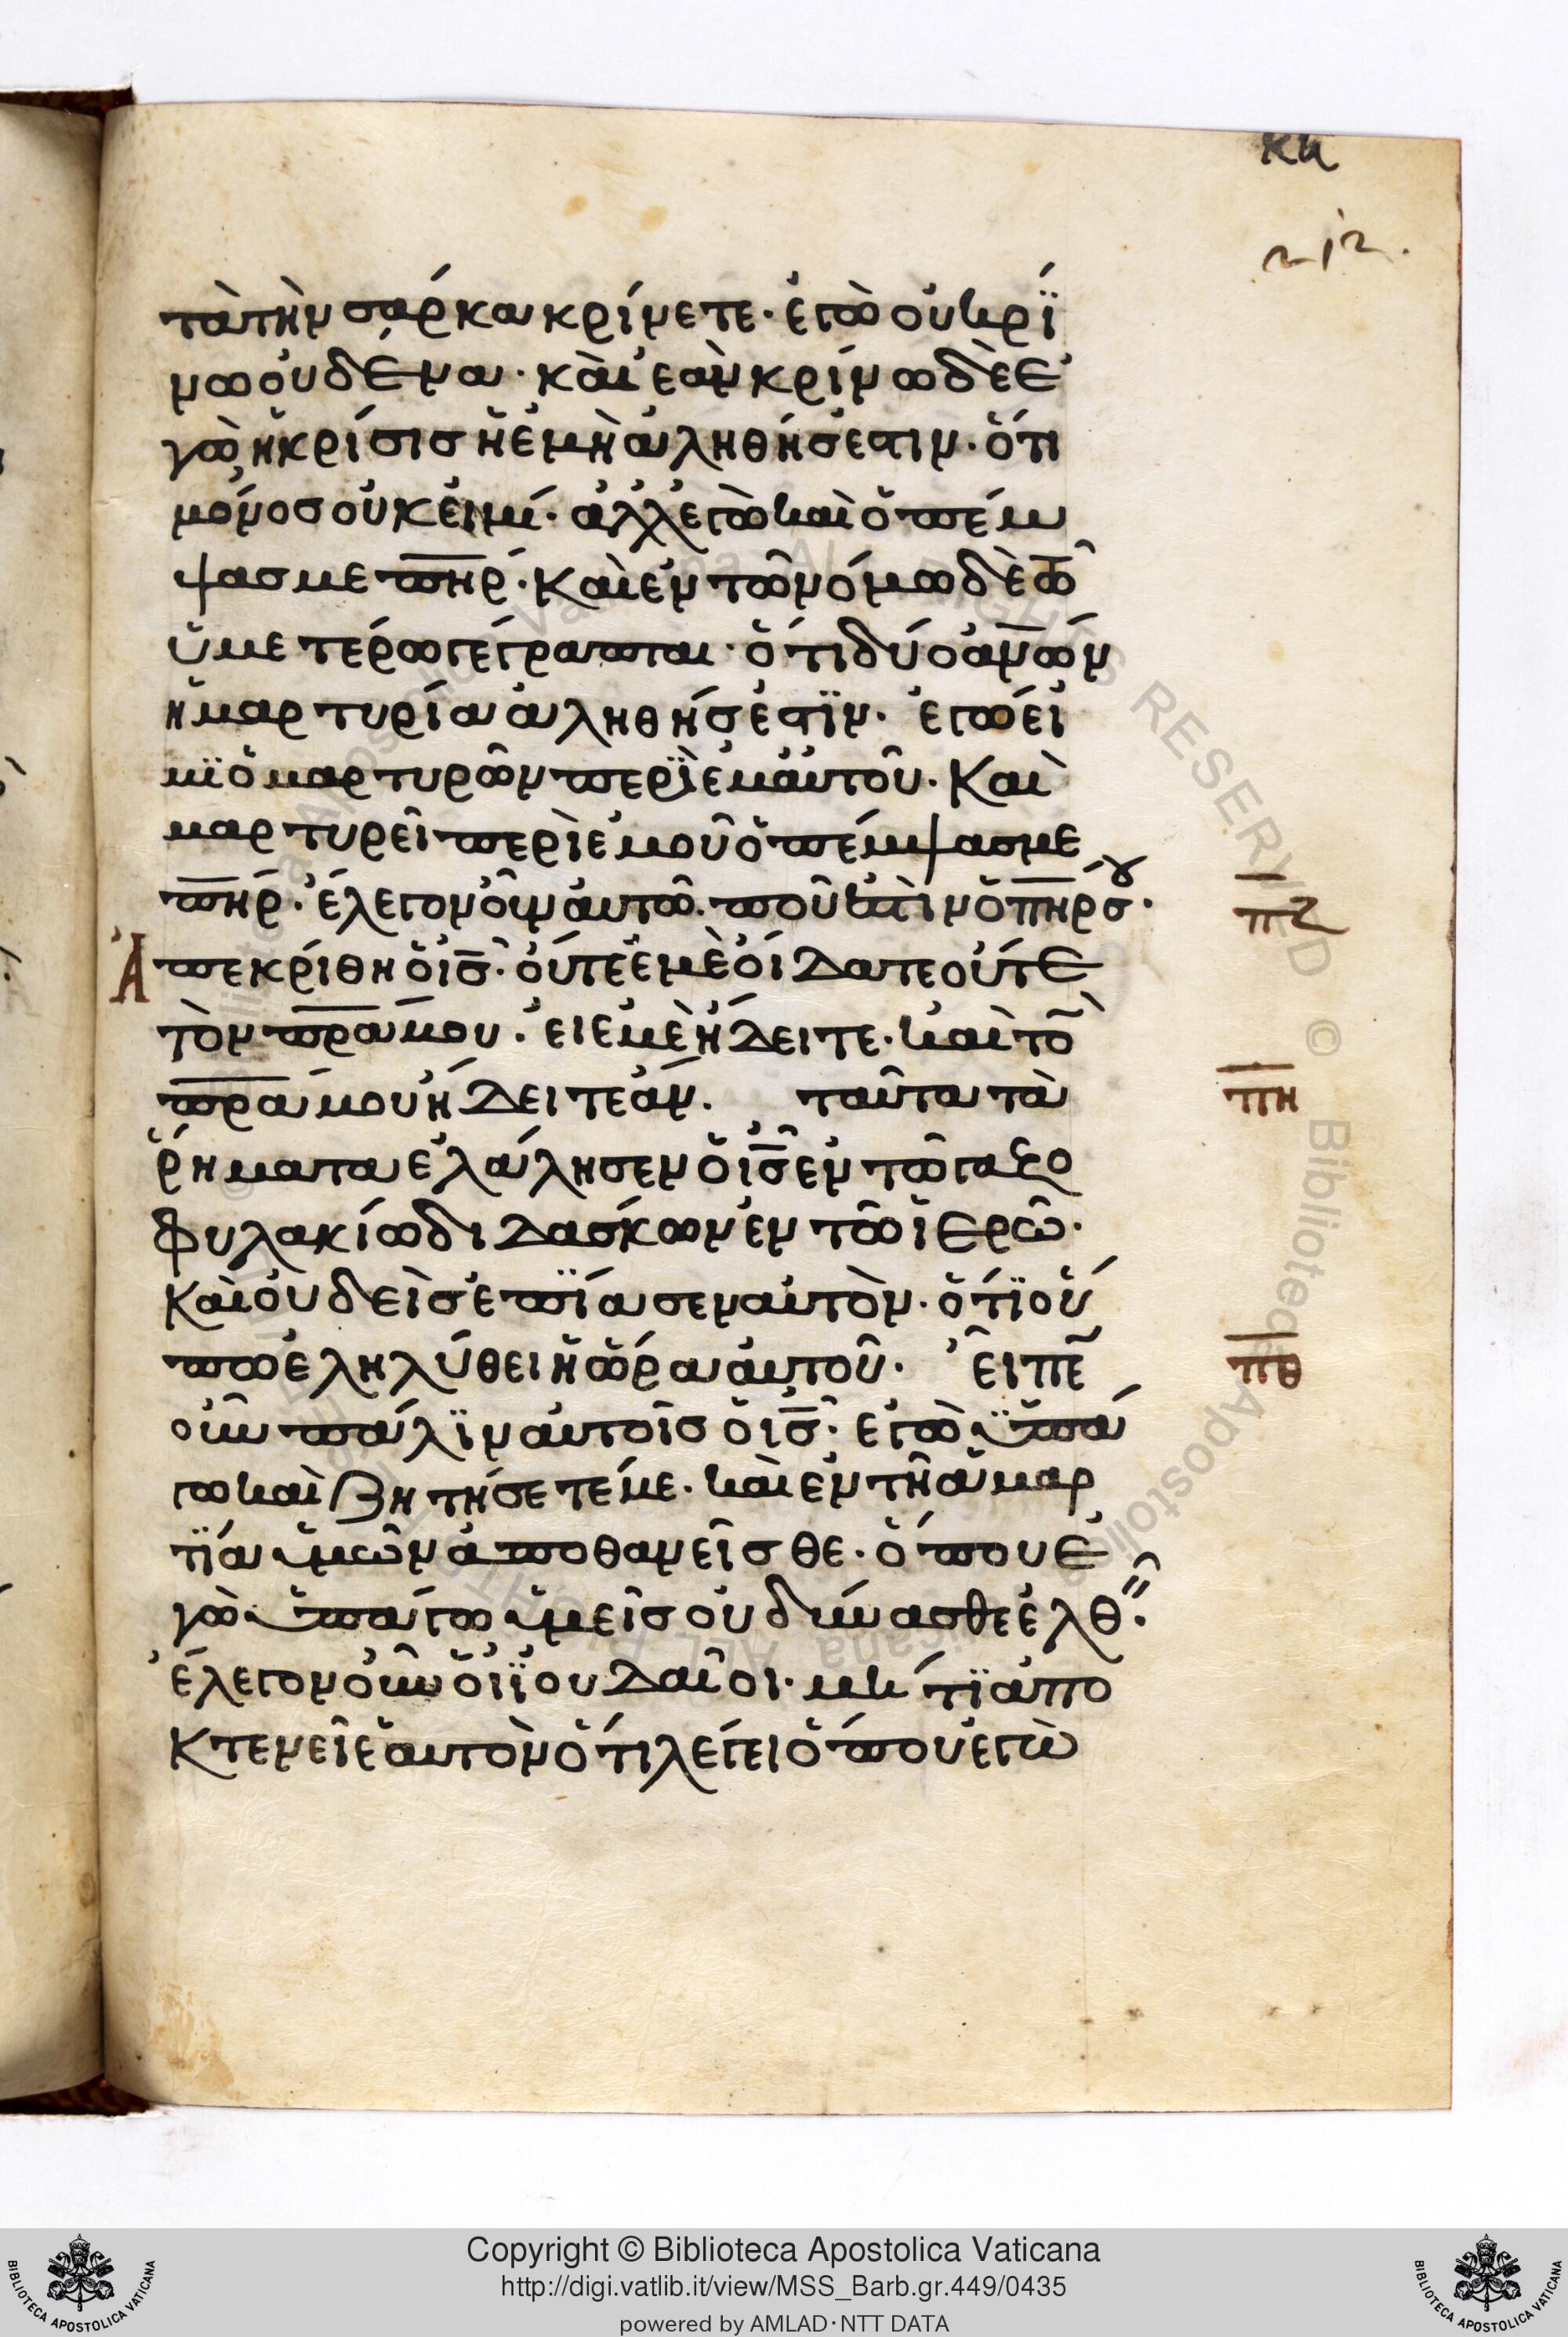 κη
212.
τὰ τὴν σάρκα κρίνετε· ἐγὼ οὐ κρί
νω οὐδένα· καὶ ἐὰν κρίνω δὲ ἐ
γὼ ἡ κρίσις ἡ ἐμὴ ἀληθής ἐστιν· ὅτι
μόνος οὐκ εἰμί· ἀλλ' ἐγὼ καὶ ὁ πέμ
ψας με πηρ· Καὶ ἐν τῶ νόμω δὲ τῶ
ὑμετέρω γέγραπται· ὅτι δύο ανων
ἡ μαρτυρία ἀληθής ἐστϊν· ἐγώ εἰ
μϊ ὁ μαρτυρῶν περϊ ἐμαυτοῦ· Καὶ
μαρτυρεῖ περὶ ἐμοῦ ὁ πέμψας με
πηρ· ἔλεγον οὖν αὐτῶ· ποῦ ἐστὶν ὁ πηρ σου·
πζ
Ἀπεκρίθη ὁ ις· οὔτε ἐμὲ οἴδατε οὔτε
τὸν πρα μου· εἰ ἐμὲ ἤδειτε· καὶ τὸ
πρα μου ἤδειτε ἄν. ταῦτα τὰ
πη
ῥήματα ἐλάλησεν ὁ ις ἐν τῶ γαζο
φυλακίω διδάσκων ἐν τῶ ἱερῶ·
Καὶ οὐδεὶς ἐπϊασεν αὐτὸν· ὅτϊ οὔ
πω ἐληλύθει ἡ ὥρα αὐτοῦ· Εἶπε
πθ
οὖν πάλϊν αὐτοῖς ὁ ις· ἐγὼ ὑπά
γω καὶ ζητήσετέ με· καὶ ἐν τῆ ἁμαρ
τϊα ὑμῶν ἀποθανεῖσθε· ὅπου ἐ
γὼ ὑπάγω ὑμεῖς οὐ δύνασθε ἐλθ·
ἔλεγον οὖν οἱ ϊουδαῖοι· μήτϊ ἀπο
Κτενεῖ ἑαυτὸν ὅτι λέγει ὅπου ἐγὼ
Copyright © Biblioteca Apostolica Vaticana
http://digi.vatlib.it/view/MSS_Barb.gr.449/0435
powered by AMLAD·NTT DATA